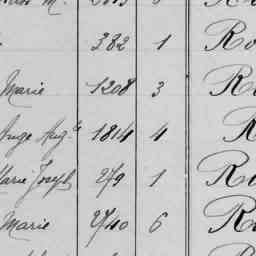 382 1 Ro
Marie 1208 3 Ro
Ange Aug.te 1814 4 R
Marie Joseph 279 1 Ro
Marie 2740 6 Ro